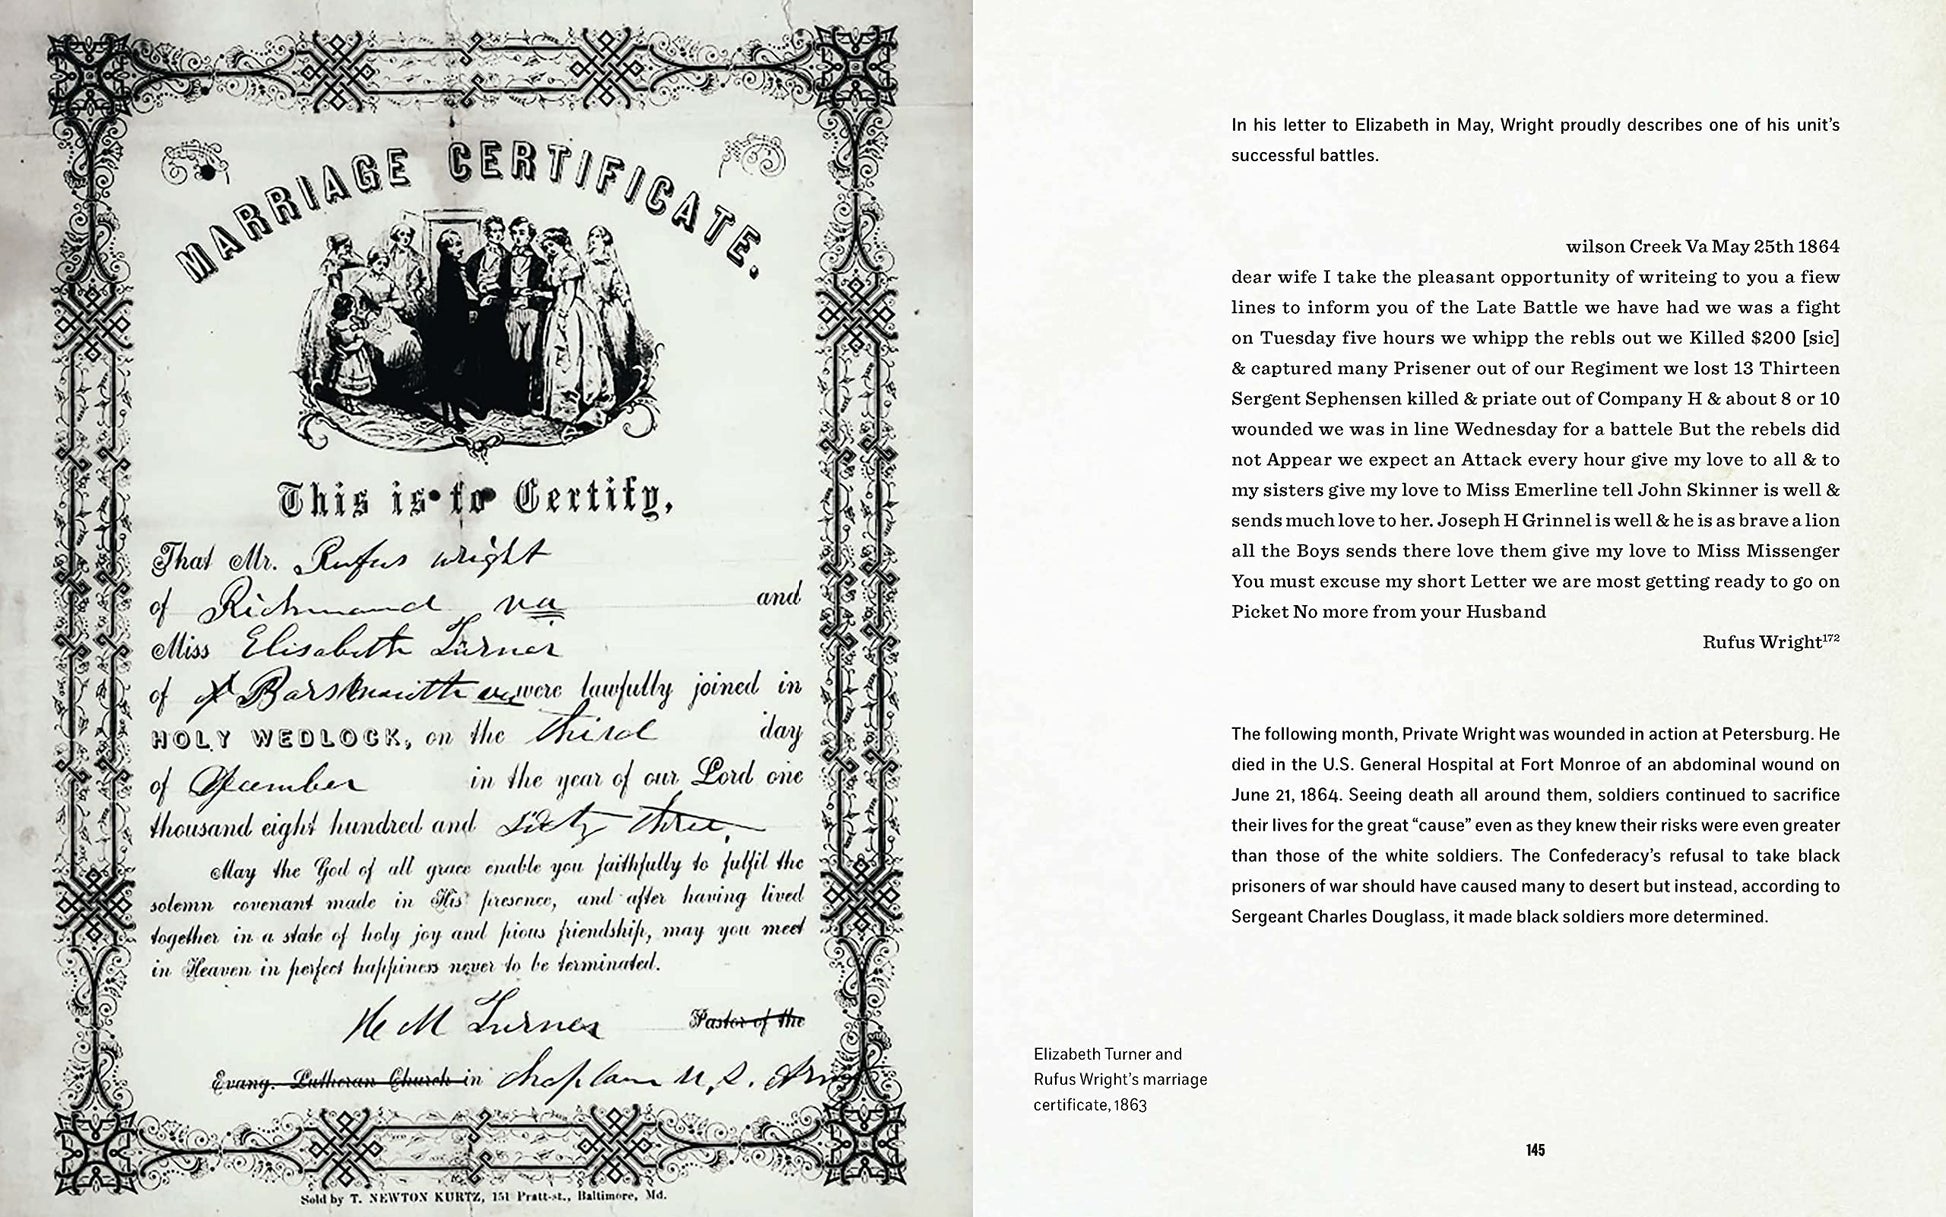 MARRIAGE CERTIFICATE.
This is to Certify,
That Mr. Rufus wright
of Richmond va and
Miss Elisabeth Turner
of were lawfully joined in
HOLY WEDLOCK, on the third day
of December in the year of our Lord one
thousand eight hundred and sixty three,
May the God of all grace enable you faithfully to fulfil the
solemn covenant made in His presence, and after having lived
together in a state of holy joy and pious friendship, may you meet
in Heaven in perfect happiness never to be terminated.
H M Turner Pastor of the
Evang. Lutheran Church in Chaplain U, S. Army
Sold by T. NEWTON KURTZ, 151 Pratt-st., Baltimore, Md.
In his letter to Elizabeth in May, Wright proudly describes one of his unit's
successful battles.
wilson Creek Va May 25th 1864
dear wife I take the pleasant opportunity of writeing to you a fiew
lines to inform you of the Late Battle we have had we was a fight
on Tuesday five hours we whipp the rebls out we Killed $200 [sic]
& captured many Prisener out of our Regiment we lost 13 Thirteen
Sergent Sephensen killed & priate out of Company H & about 8 or 10
wounded we was in line Wednesday for a battele But the rebels did
not Appear we expect an Attack every hour give my love to all & to
my sisters give my love to Miss Emerline tell John Skinner is well &
sends much love to her. Joseph H Grinnel is well & he is as brave a lion
all the Boys sends there love them give my love to Miss Missenger
You must excuse my short Letter we are most getting ready to go on
Picket No more from your Husband
Rufus Wright172
The following month, Private Wright was wounded in action at Petersburg. He
died in the U.S. General Hospital at Fort Monroe of an abdominal wound on
June 21, 1864. Seeing death all around them, soldiers continued to sacrifice
their lives for the great "cause" even as they knew their risks were even greater
than those of the white soldiers. The Confederacy's refusal to take black
prisoners of war should have caused many to desert but instead, according to
Sergeant Charles Douglass, it made black soldiers more determined.
Elizabeth Turner and
Rufus Wright's marriage
certificate, 1863
145